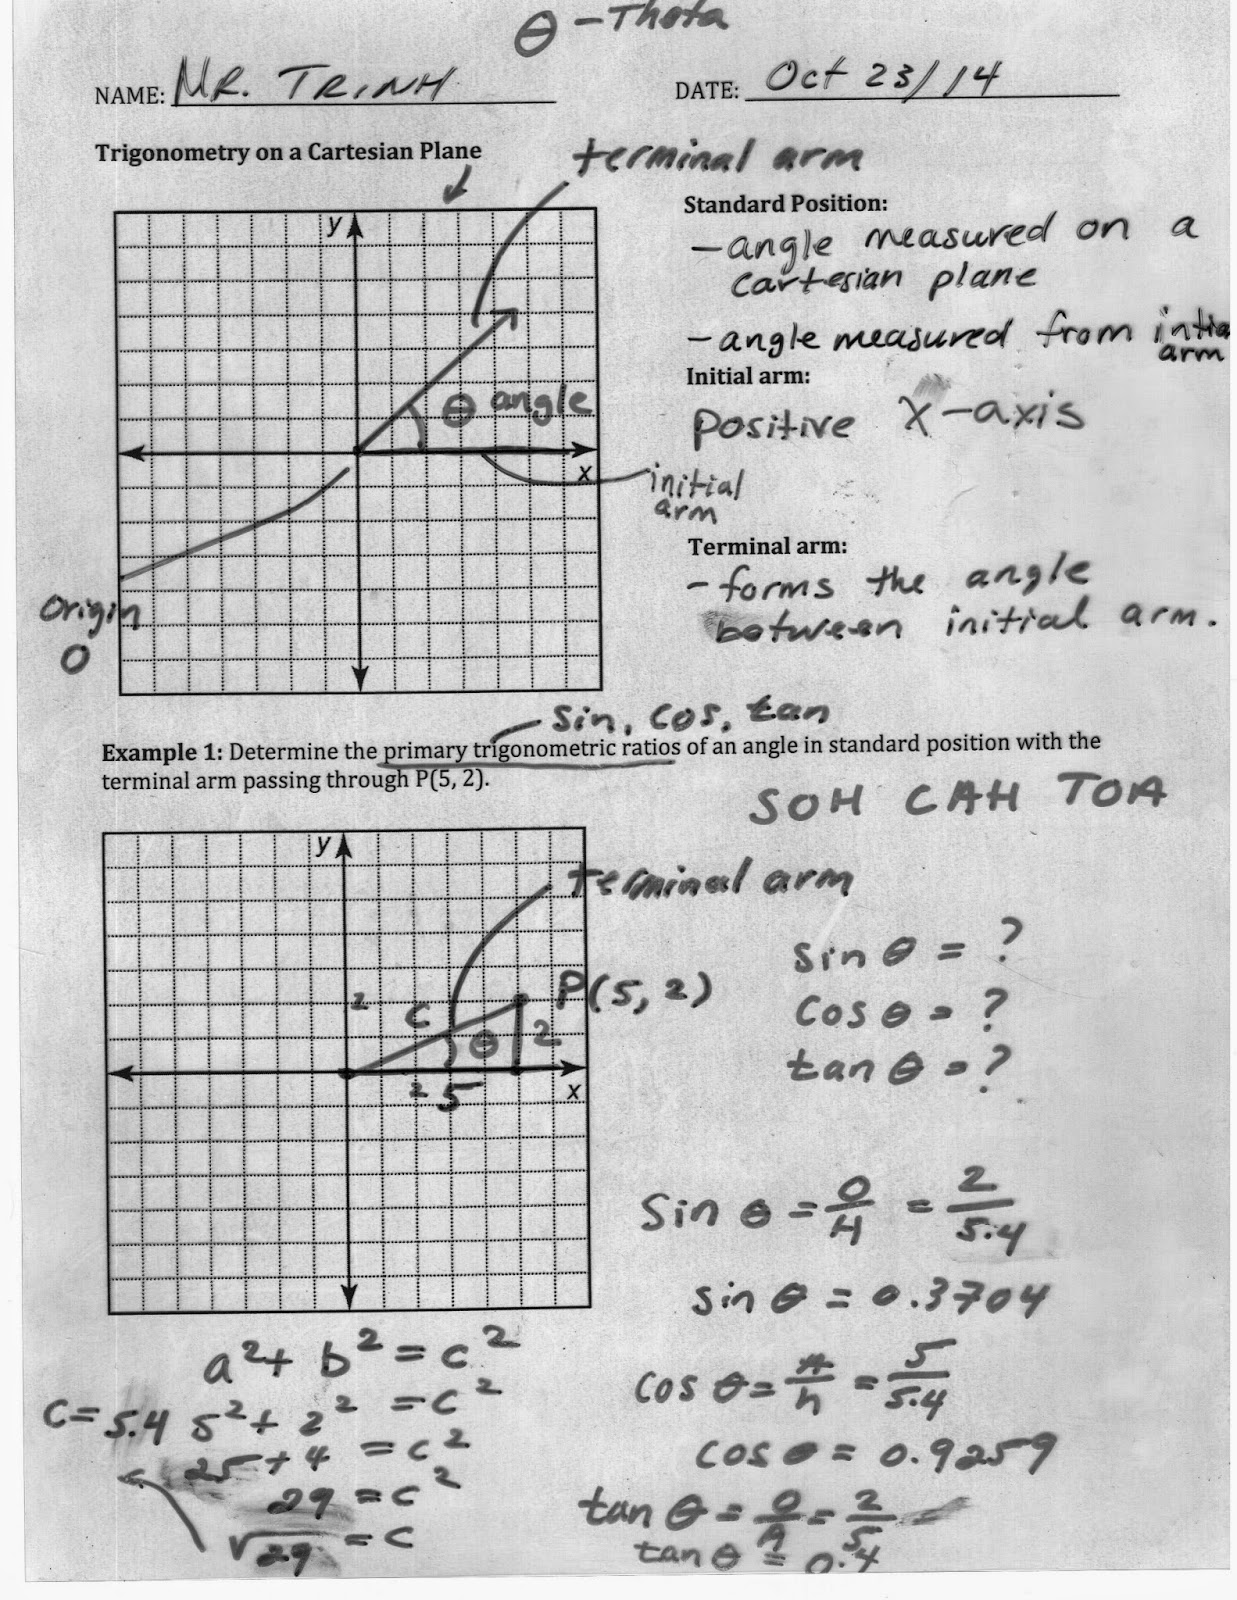 θ - Theta
NAME: MR. TRINH
DATE: Oct 23/14
Trigonometry on a Cartesian Plane
terminal arm
y
θ angle
x
initial
arm
origin
O
Standard Position:
- angle measured on a
cartesian plane
- angle measured from intia
arm
Initial arm:
positive x-axis
Terminal arm:
- forms the angle
between initial arm.
sin, cos, tan
Example 1: Determine the primary trigonometric ratios of an angle in standard position with the
terminal arm passing through P(5, 2).
SOH CAH TOA
y
terminal arm
P(5, 2)
2
c
θ
2
2
5
x
sin θ = ?
cos θ = ?
tan θ = ?
sin θ = O/H = 2/5.4
sin θ = 0.3704
cos θ = A/h = 5/5.4
cos θ = 0.9259
tan θ = O/A = 2/5 =
tan θ = 0.4
a² + b² = c²
5² + 2² = c²
25 + 4 = c²
29 = c²
√29 = c
c = 5.4